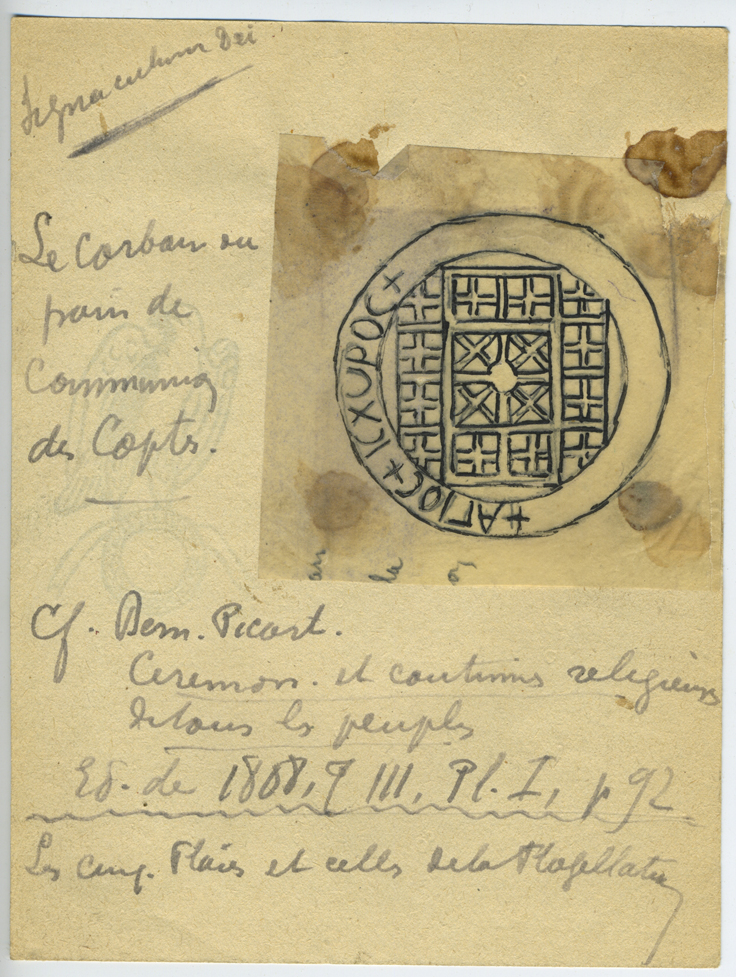 Signaculum Dei
Le Corban ou
pain de
Communion
des Coptes.
+ΑΓΙΟC+ΙCΧΥΡΟC+
au
la
Cf. Bern. Picart.
Ceremon. et coutumes religieuses
de tous les peuples
Ed. de 1808, T III, Pl. I, p 92
Les cinq Plaies et celles de la Flagellation